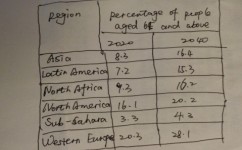 Region Percentage of people
aged 65 and above
2020 2040
Asia 8.3 16.4
Latin America 7.2 15.3
North Africa 4.3 10.2
North America 16.1 20.2
Sub-Sahara 3.3 4.3
Western Europe 20.3 28.1